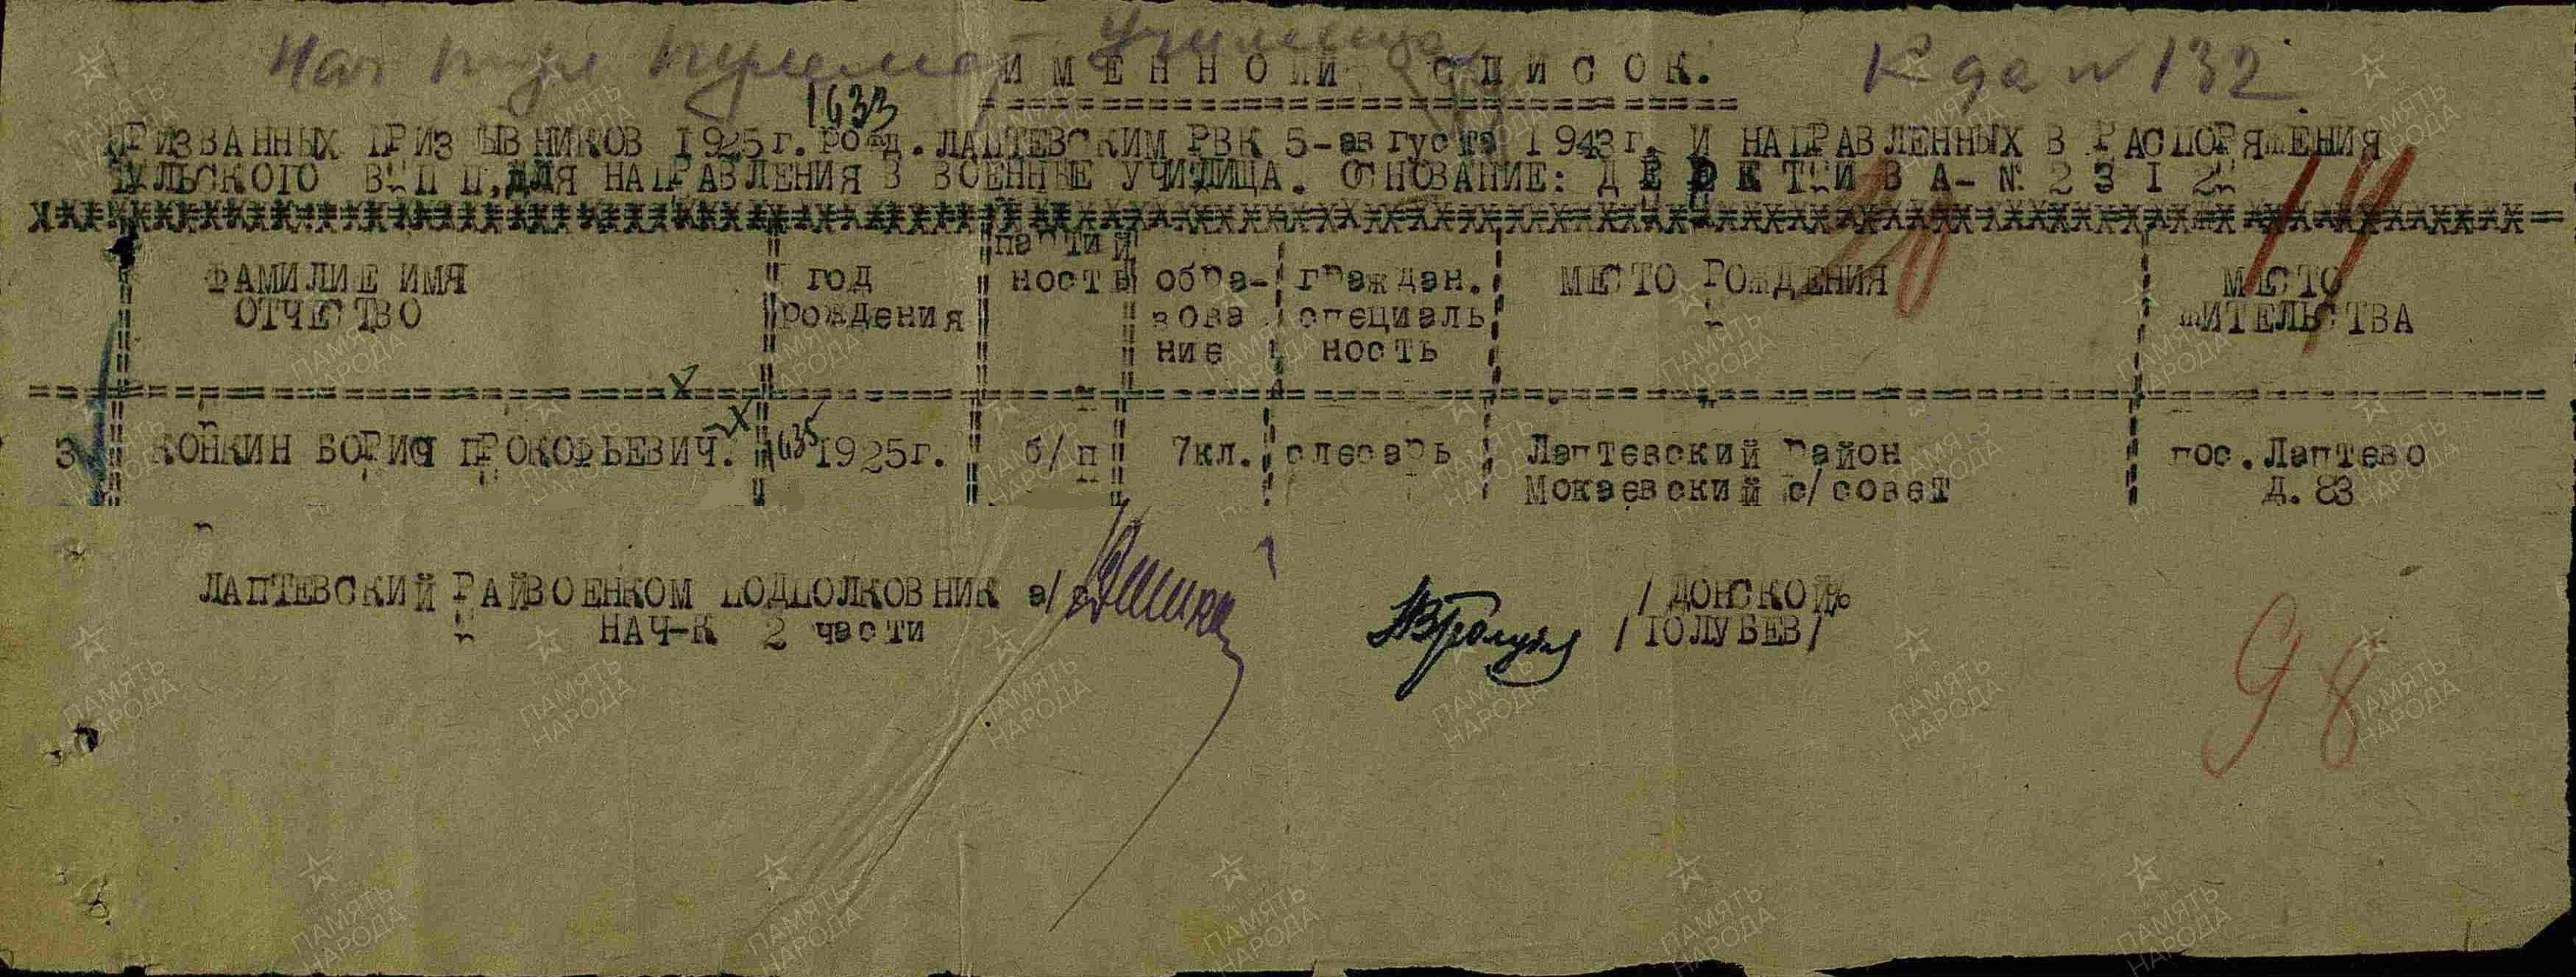 училища
К де № 132
ИМЕННОЙ СПИСОК.
1633
ПРИЗВАННЫХ ПРИЗЫВНИКОВ 1925г. рожд. ЛАПТЕВСКИМ РВК 5-августа 1943г. И НАПРАВЛЕННЫХ В РАСПОРЯЖЕНИЯ
ТУЛЬСКОГО ВПП, ДЛЯ НАПРАВЛЕНИЯ В ВОЕННЫЕ УЧИЛИЩА. ОСНОВАНИЕ: ДЕРЕКТИВА-№ 2312
ФАМИЛИЕ ИМЯ
ОТЧЕСТВО
год
рождения
партий
ность
обра-
зова
ние
граждан.
специаль
ность
МЕСТО РОЖДЕНИЯ
МЕСТО
ЖИТЕЛЬСТВА
3 КОНКИН БОРИС ПРОКОФЬЕВИЧ. 1635 1925г. б/п 7кл. слесарь Лаптевский район пос. Лаптево
Мокаевский с/совет д. 83
ЛАПТЕВСКИЙ РАЙВОЕНКОМ ПОДПОЛКОВНИК а/с /ДОНСКОЙ%
НАЧ-К 2 части /ГОЛУБЕВ/
98
ПАМЯТЬ
НАРОДА